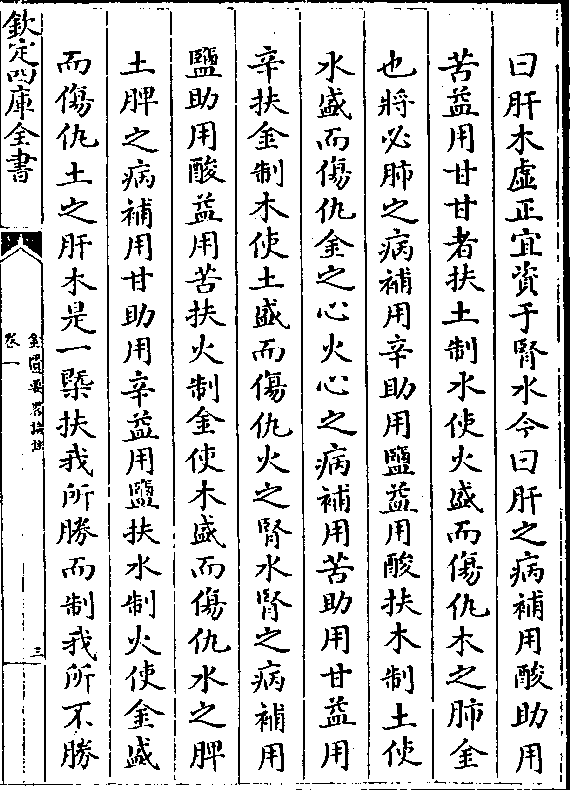 曰肝木虛正宜資于腎水今曰肝之病補用酸助用
苦益用甘甘者扶土制水使火盛而傷仇木之肺金
也將必肺之病補用辛助用鹽益用酸扶木制土使
水盛而傷仇金之心火心之病補用苦助用甘益用
辛扶金制木使土盛而傷仇火之腎水腎之病補用
鹽助用酸益用苦扶火制金使木盛而傷仇水之脾
土脾之病補用甘助用辛益用鹽扶水制火使金盛
而傷仇土之肝木是一槩扶我所勝而制我所不勝
欽定四庫全書
金匱要畧論註
卷一
三